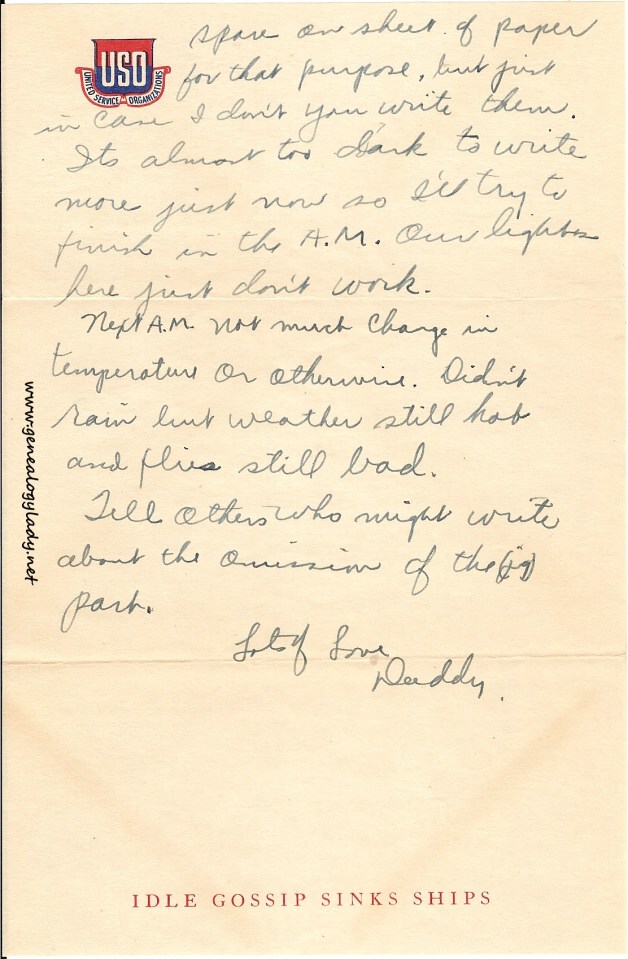 spare on sheet of paper
for that purpose, but just
in case I don't you write them.
Its almost too dark to write
more just now so I'll try to
finish in the A.M. Our lights
here just don't work.
Next A.M. not much change in
temperature or otherwise. Didn't
rain but weather still hot
and flies still bad.
Tell others who might write
about the omission of the
part.
Lots of Love
Daddy.
USO
UNITED SERVICE ORGANIZATIONS
www.genealogylady.net
IDLE GOSSIP SINKS SHIPS